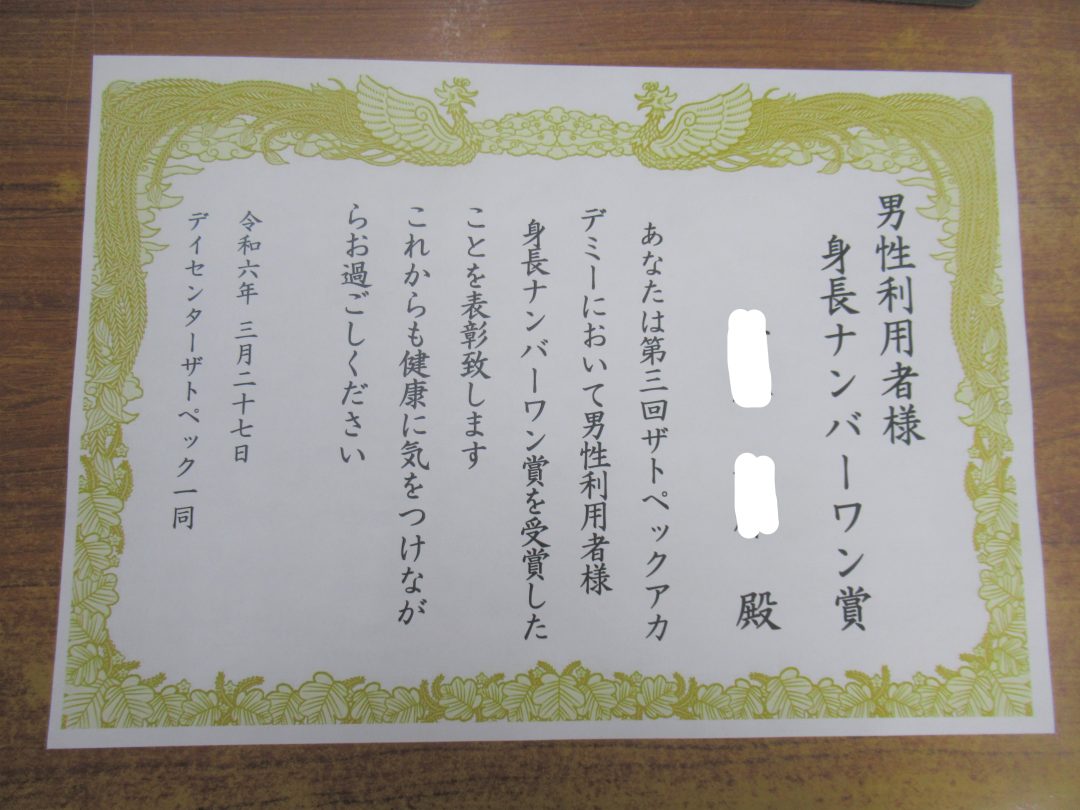 男性利用者様
身長ナンバーワン賞
殿
あなたは第三回ザトペックアカ
デミーにおいて男性利用者様
身長ナンバーワン賞を受賞した
ことを表彰致します
これからも健康に気をつけなが
らお過ごしください
令和六年 三月二十七日
デイセンターザトペック一同